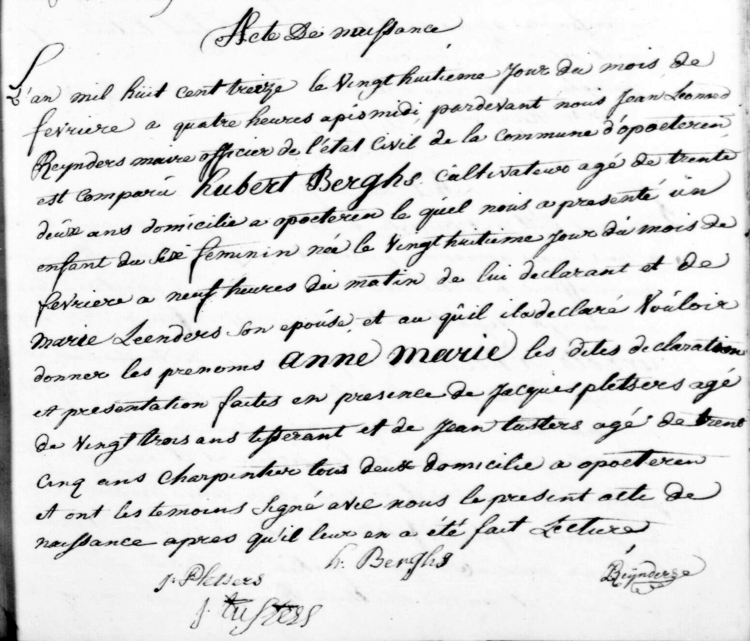 Acte De naissance
L'an mil huit cent treize le vingt huitieme jour du mois de
fevriere a quatre heures apismidi pardevant nous Jean Leonard
Reynders maire officier de l'état Civil de la Commune d'opoeteren
est comparû hubert Berghs cultivateur agé de trente
deux ans domicilié a opoeteren le quel nous a presenté un
enfant du sexe feminin née le vingt huitieme jour du mois de
fevriere a neuf heures du matin de lui declarant et de
marie Leenders son epouse et au quil il a declaré vouloir
donner les prenoms anne marie les dites declaration
et presentation faites en presence de Jacques pletsers agé
de vingt trois ans tisserant et de Jean tusters agé de trent
cinq ans charpentier tous deux domicilié a opoeteren
et ont les temoins signé avec nous le present acte de
naissance apres qu'il leur en a été fait Lecture
h. Berghs
j. Pletsers
Reÿnders
j. tusters